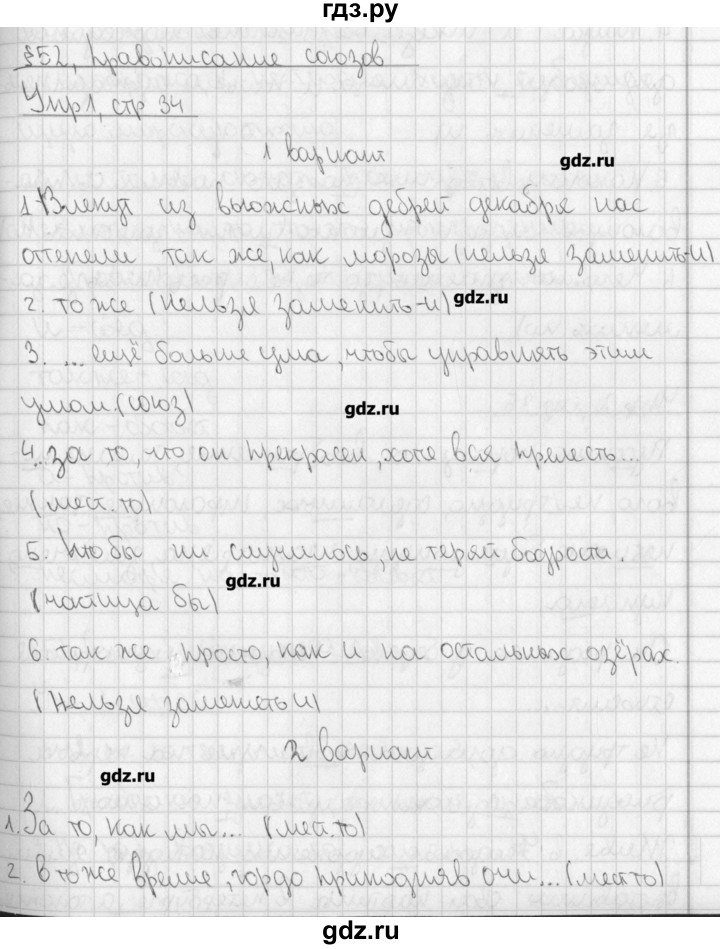 гдз.ру
§52, Правописание союзов
Упр1, стр 34
1 вариант
gdz.ru
1 Влекут из вьюжных дебрей декабря нас
оттепели так же, как морозы (нельзя заменить-и)
2. то же (нельзя заменить-и) gdz.ru
3. ... ещё больше ума, чтобы управлять этим
умом. (союз) gdz.ru
4...за то, что он прекрасен, хотя вся прелесть...
(мест. то)
5. что бы ни случилось, не теряй бодрости.
(частица бы) gdz.ru
6. так же просто, как и на остальных озёрах.
(нельзя заменить и)
2 вариант
gdz.ru
1. За то, как мы... (мест. то)
2. в то же время, гордо приподняв очи... (мест то)
gdz.ru